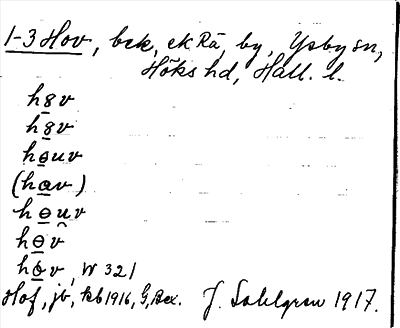 1-3 Hov, bck, ek Rä, by, Ysby sn,
Höks hd, Hall. l.
hav
hav
hɵuv
(hav)
hɵuv
hɵv
hɵv, W 321
Hof, jb, kb 1916, G, Bex. J. Sahlgren 1917.